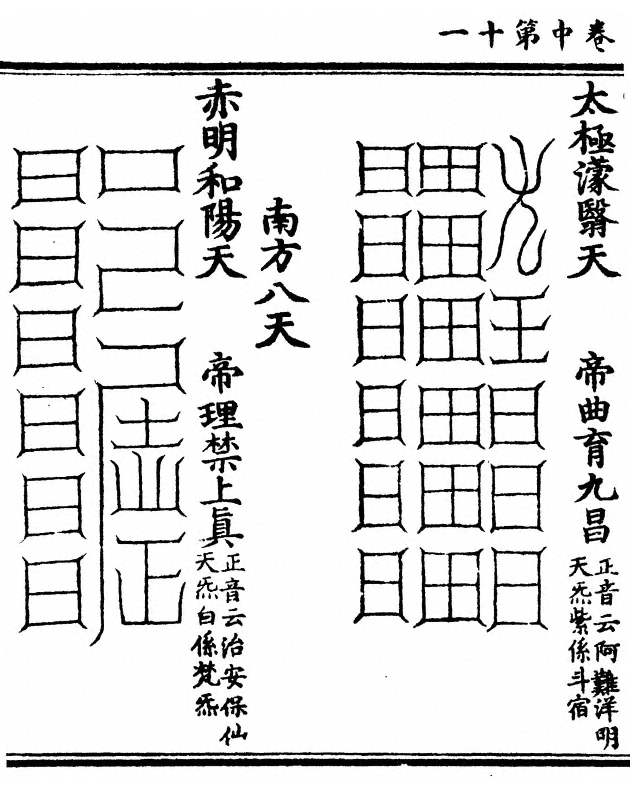 卷中第十一
太極濛翳天
帝曲育九昌
正音云阿難洋明
天炁紫係斗宿
南方八天
赤明和陽天
帝理禁上眞
正音云治安保仙
天炁白係梵炁